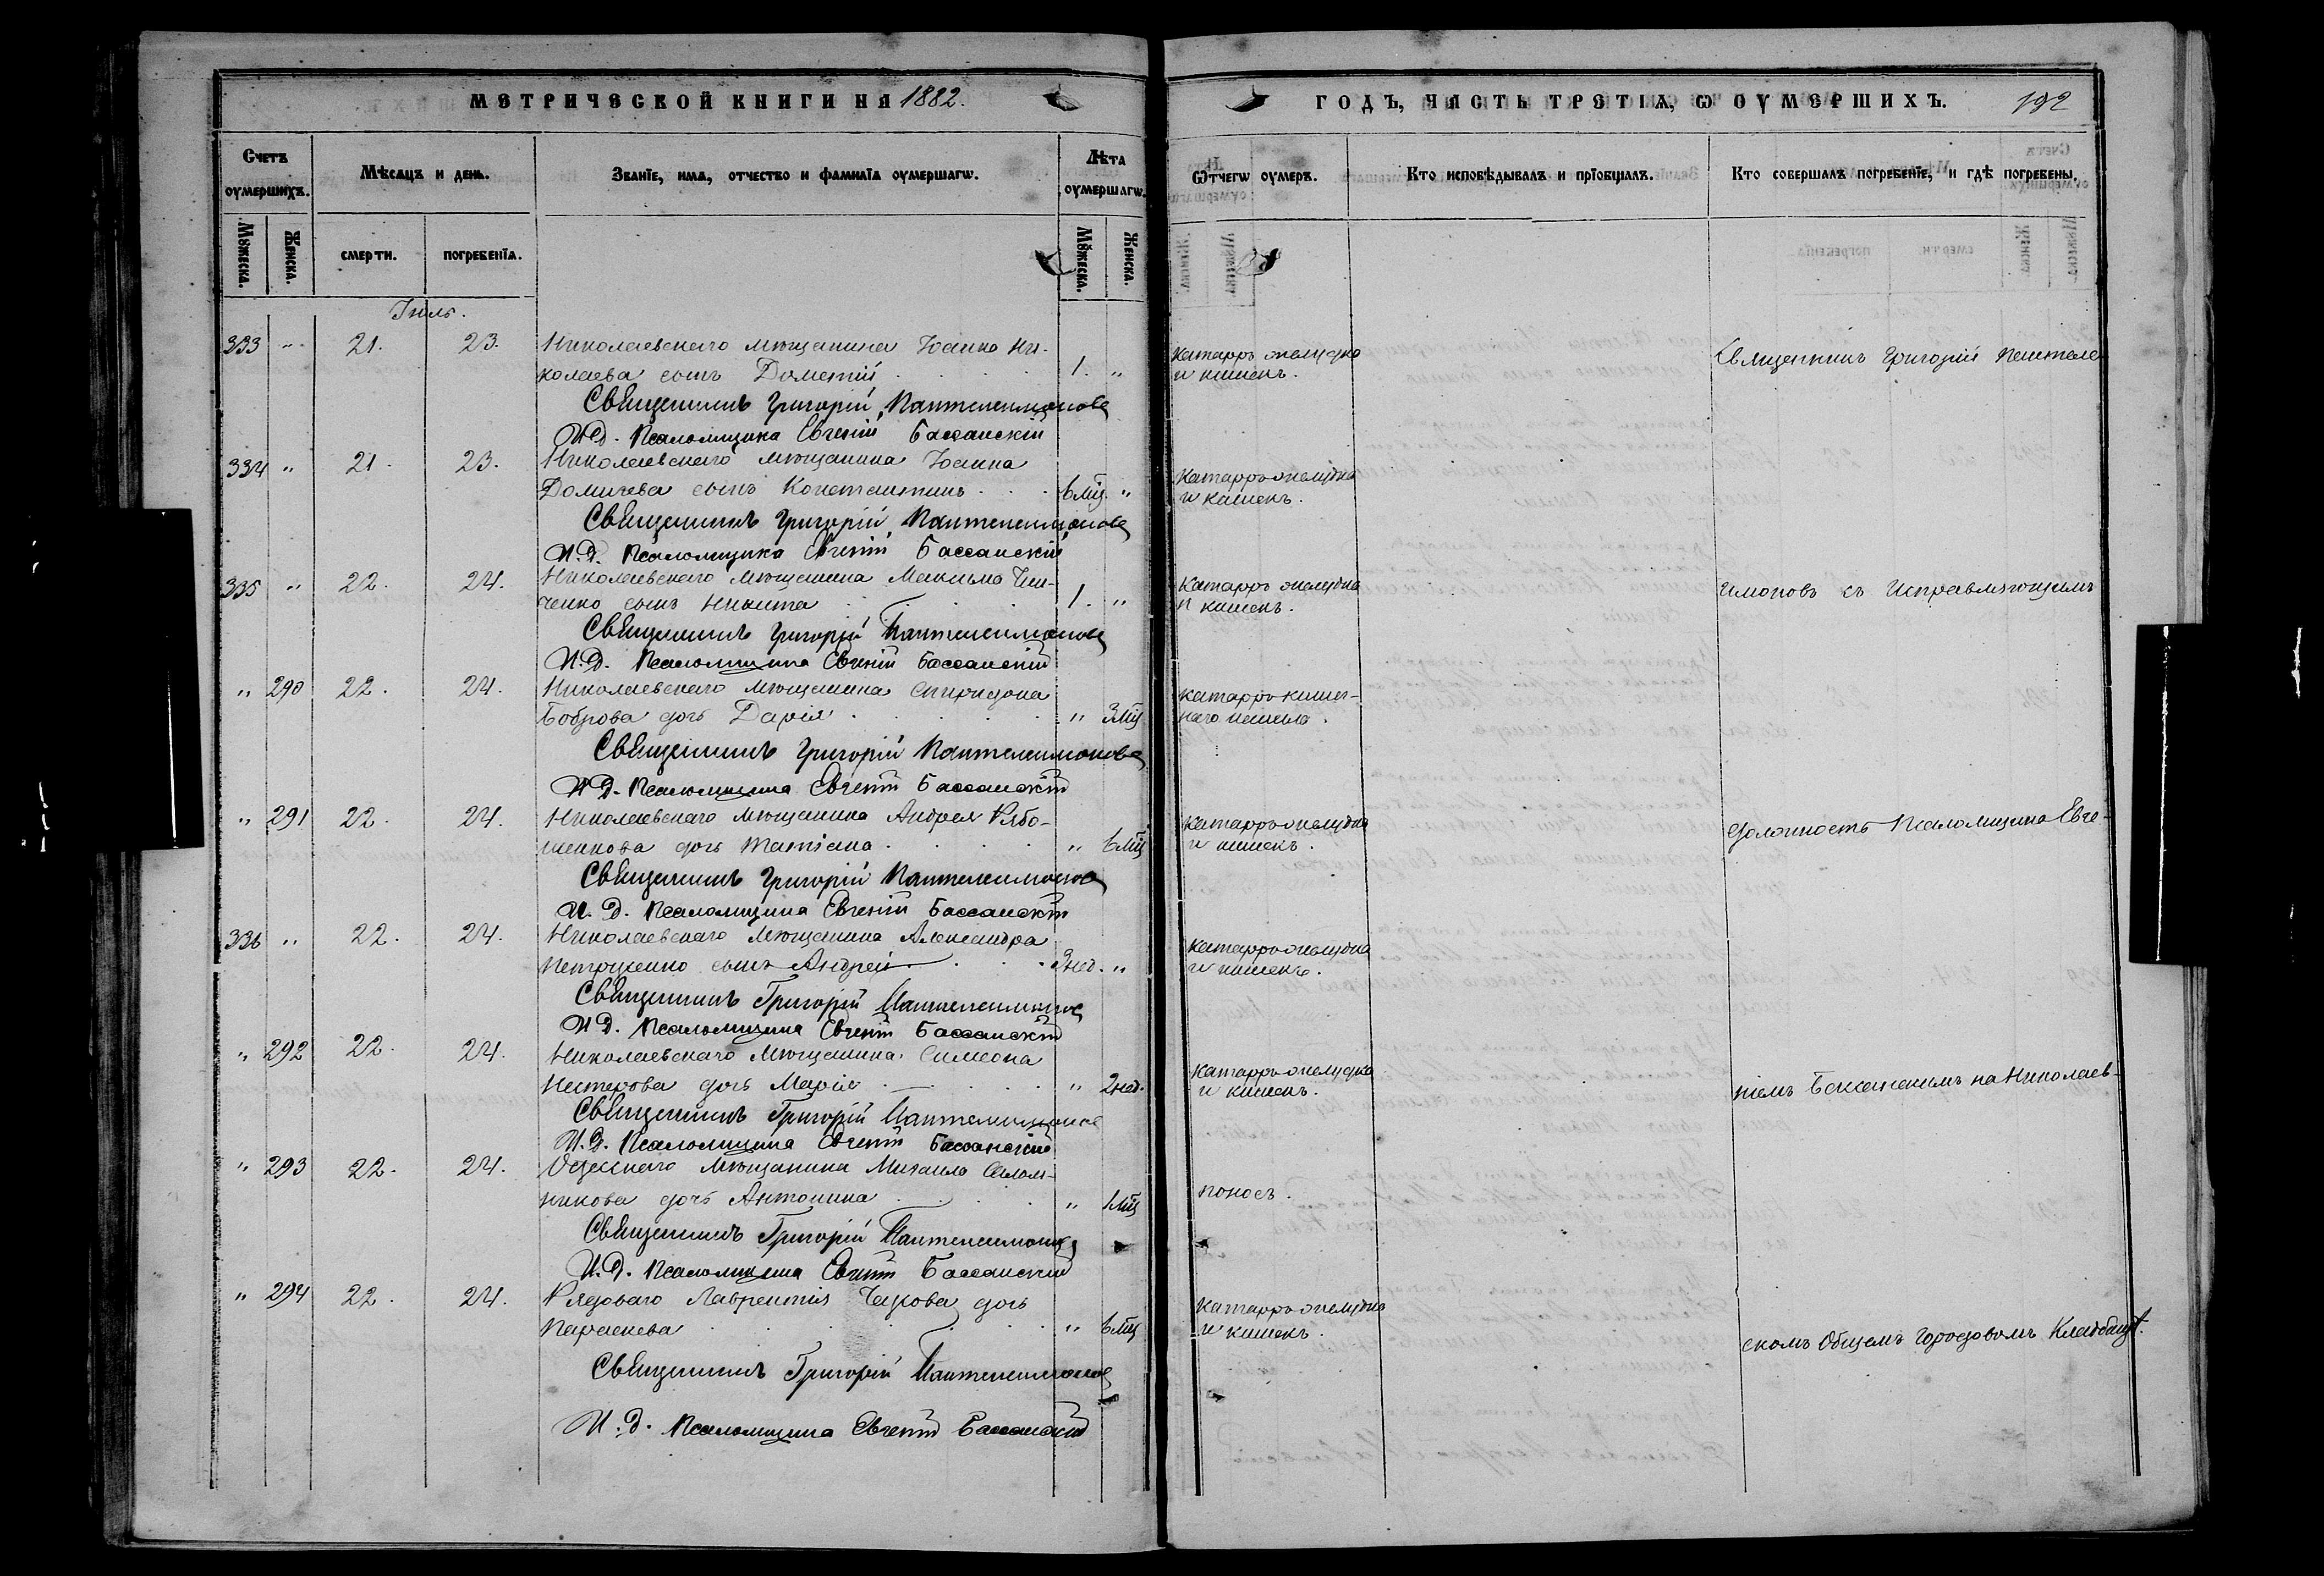 МЕТРИЧЕСКОЙ КНИГИ НА 1882.
ГОДЪ, ЧАСТЬ ТРЕТІѦ, Ѡ ОУМЕРШИХЪ. 192
Счетъ оумершихъ.
Мѣсяцъ и день.
Званїе, имѧ, отчество и фамилїа оумершагѡ.
Лѣта оумершагѡ.
Ѿчегѡ оумеръ.
Кто исповѣдывалъ и прїобщалъ.
Кто совершалъ погребенїе, и гдѣ погребены.
Мꙋжеска. Женска. смерти. погребенїѧ. Мꙋжеска. Женска.
Іюль.
333 " 21. 23. Николаевскаго мѣщанина Іоанна Ни-
колаева сынъ Дометій 1. " Катарръ желудка
и кишекъ.
Священникъ Григорій Пантеле-
Священникъ Григорій Пантелеимоновъ
И.Д. Псаломщика Евгеній Бассанскій
334 " 21. 23. Николаевскаго мѣщанина Іоанна
сынъ Константинъ 6 мц. " Катарръ желудка
и кишекъ.
Священникъ Григорій Пантелеимоновъ
И.Д. Псаломщика Евгеній Бассанскій
335 " 22. 24. Николаевскаго мѣщанина Максима
ченко сынъ Никита 1. " Катарръ желудка
и кишекъ.
имоновъ съ Исправляющимъ
Священникъ Григорій Пантелеимоновъ
И.Д. Псаломщика Евгеній Бассанскій
" 290 22. 24. Николаевскаго мѣщанина Спиридона
Боброва дочь Дарія " 3 мц Катарръ кишеч-
наго канала.
Священникъ Григорій Пантелеимоновъ
И.Д. Псаломщика Евгеній Бассанскій
" 291 22. 24. Николаевскаго мѣщанина Андрея Рябо-
шенкова дочь Татіана " 6 мц Катарръ желудка
и кишекъ.
должность Псаломщика Евге-
Священникъ Григорій Пантелеимоновъ
И.Д. Псаломщика Евгеній Бассанскій
336 " 22. 24. Николаевскаго мѣщанина Александра
Петрученко сынъ Андрей 3 нед. " Катарръ желудка
и кишекъ.
Священникъ Григорій Пантелеимоновъ
И.Д. Псаломщика Евгеній Бассанскій
" 292 22. 24. Николаевскаго мѣщанина Симеона
Нестерова дочь Марія " 2 нед. Катарръ желудка
и кишекъ.
ніемъ Бассанскимъ на Николаев-
Священникъ Григорій Пантелеимоновъ
И.Д. Псаломщика Евгеній Бассанскій
" 293 22. 24. Одесскаго мѣщанина Михаила
никова дочь Антонина " 1 мц поносъ.
Священникъ Григорій Пантелеимоновъ
И.Д. Псаломщика Евгеній Бассанскій
" 294 22. 24. Рядоваго Лаврентія дочь
Параскева " 6 мц Катарръ желудка
и кишекъ.
скомъ Общемъ Городовомъ Кладбищѣ.
Священникъ Григорій Пантелеимоновъ
И.Д. Псаломщика Евгеній Бассанскій